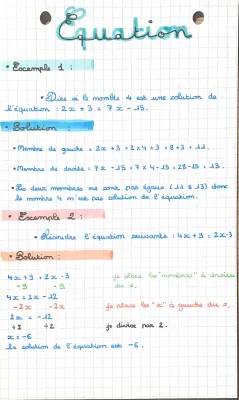 Equation
• Exemple 1 :
• Dire si le nombre 4 est une solution de
l'équation : 2x + 3 = 7x - 15.
• Solution :
• Membre de gauche = 2x + 3 = 2 x 4 + 3 = 8 + 3 = 11.
• Membre de droite = 7x - 15 = 7 x 4 - 15 = 28 - 15 = 13.
• Les deux membres ne sont pas égaux (11 ≠ 13) donc
le nombre 4 n'est pas solution de l'équation.
• Exemple 2 :
• Résoudre l'équation suivante : 4x + 9 = 2x - 3.
• Solution :
4x + 9 = 2x - 3 je place les "nombres" à droite
-9 -9 du =.
4x = 2x - 12 je place les "x" à gauche du =.
-2x -2x
2x = -12
÷2 ÷2 je divise par 2.
x = -6
la solution de l'équation est -6.